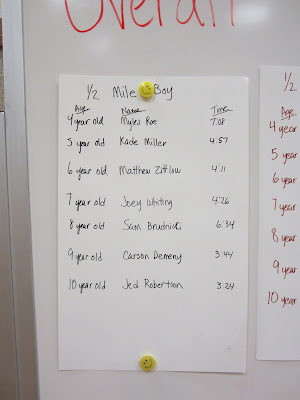 Overall
1/2 Mile Boy
Age Name Time
4 year old Myles Roe 7:08
5 year old Kade Miller 4:57
6 year old Matthew Zitlow 4:11
7 year old Joey Whiting 4:26
8 year old Sam Brudnicki 6:34
9 year old Carson Demeny 3:44
10 year old Jed Robertson 3:24
1/2
Age
4 year
5 year
6 year
7 year
8 year
9 year
10 year